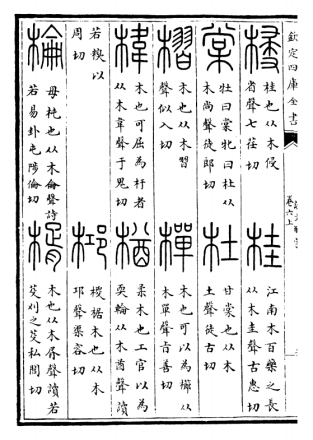 欽定四庫全書
卷六上
梫 桂也从木侵
省聲七荏切
桂 江南木百藥之長
从木圭聲古惠切
棠 牡曰棠牝曰杜从
木尚聲徒郎切
杜 甘棠也从木
土聲徒古切
槢 木也从木習
聲似入切
樿 木也可以為櫛从
木單聲旨善切
椲 木也可屈為杅者
从木韋聲于鬼切
楢 柔木也工官以為
耎輪从木酋聲讀
若糗以
周切
桏 椶椐木也从木
邛聲渠容切
棆 母杶也从木侖聲讀
若易卦屯陟倫切
楈 木也从木胥聲讀若
芟刈之芟私閭切